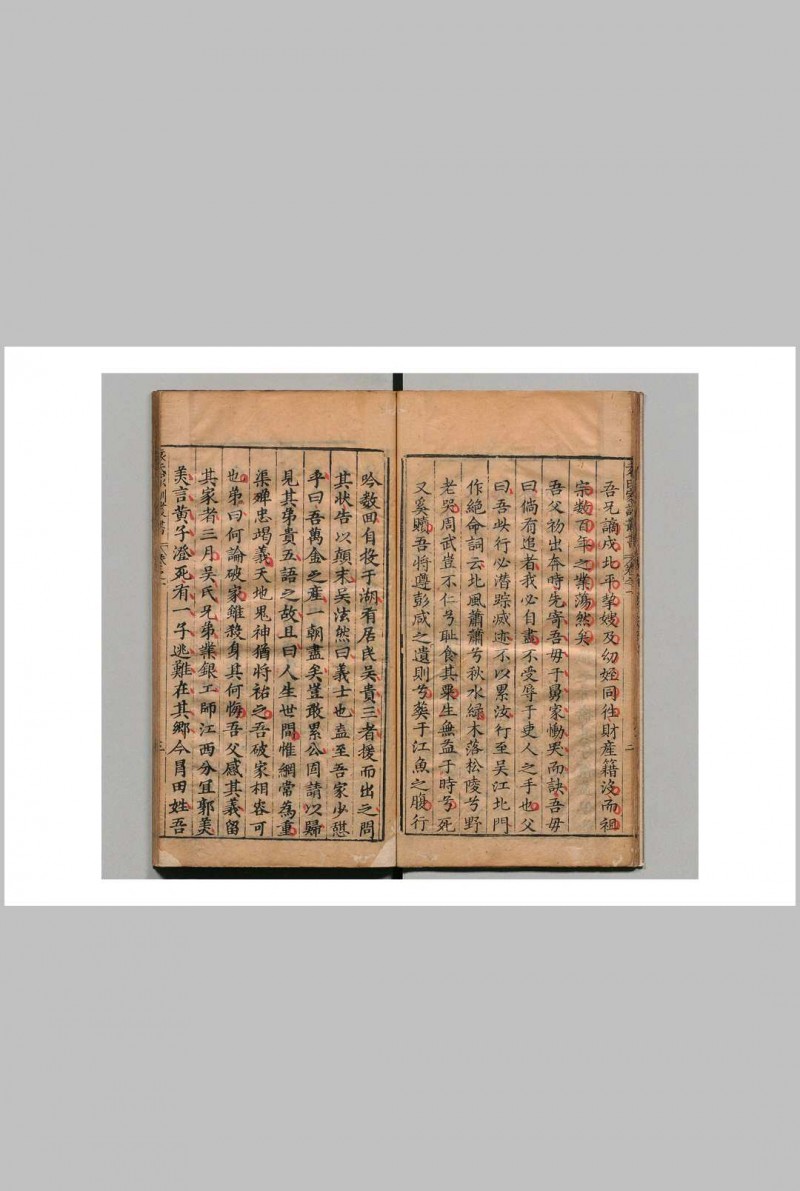 吾兄謫戍北平挈嫂及幼姪同徃財産籍沒而祖
宗數百年之業蕩然矣
吾父物出奔時先寄吾母于舅家慟哭而訣吾母
曰倘有追者我必自盡不受辱于吏人之手也父
曰吾此行必潜踪滅迹不以累汝行至吴江北門
作絶命詞云北風蕭蕭兮秋水緑木落松陵兮野
老哭周武豈不仁兮耻食其粟生無益于時兮死
又奚贖吾將遵彭咸之遺則兮葬于江魚之腹行
吟數回自投于湖有居民吴貴三者援而出之問
其状告以顛末吴泫然曰義士也盍至吾家少憇
乎曰吾萬金之産一朝盡矣豈敢累公固請以歸
見其弟貴五語之故且曰人生世間惟綱常為重
渠殫忠竭義天地鬼神猶將祐之吾破家相容可
也弟曰何論破家雖殺身其何悔吾父感其義留
其家者三月吴氏兄弟業銀工師江西分宜郭美
美言黄子澄死有一子逃難在其鄉今冒田姓吾
三
二